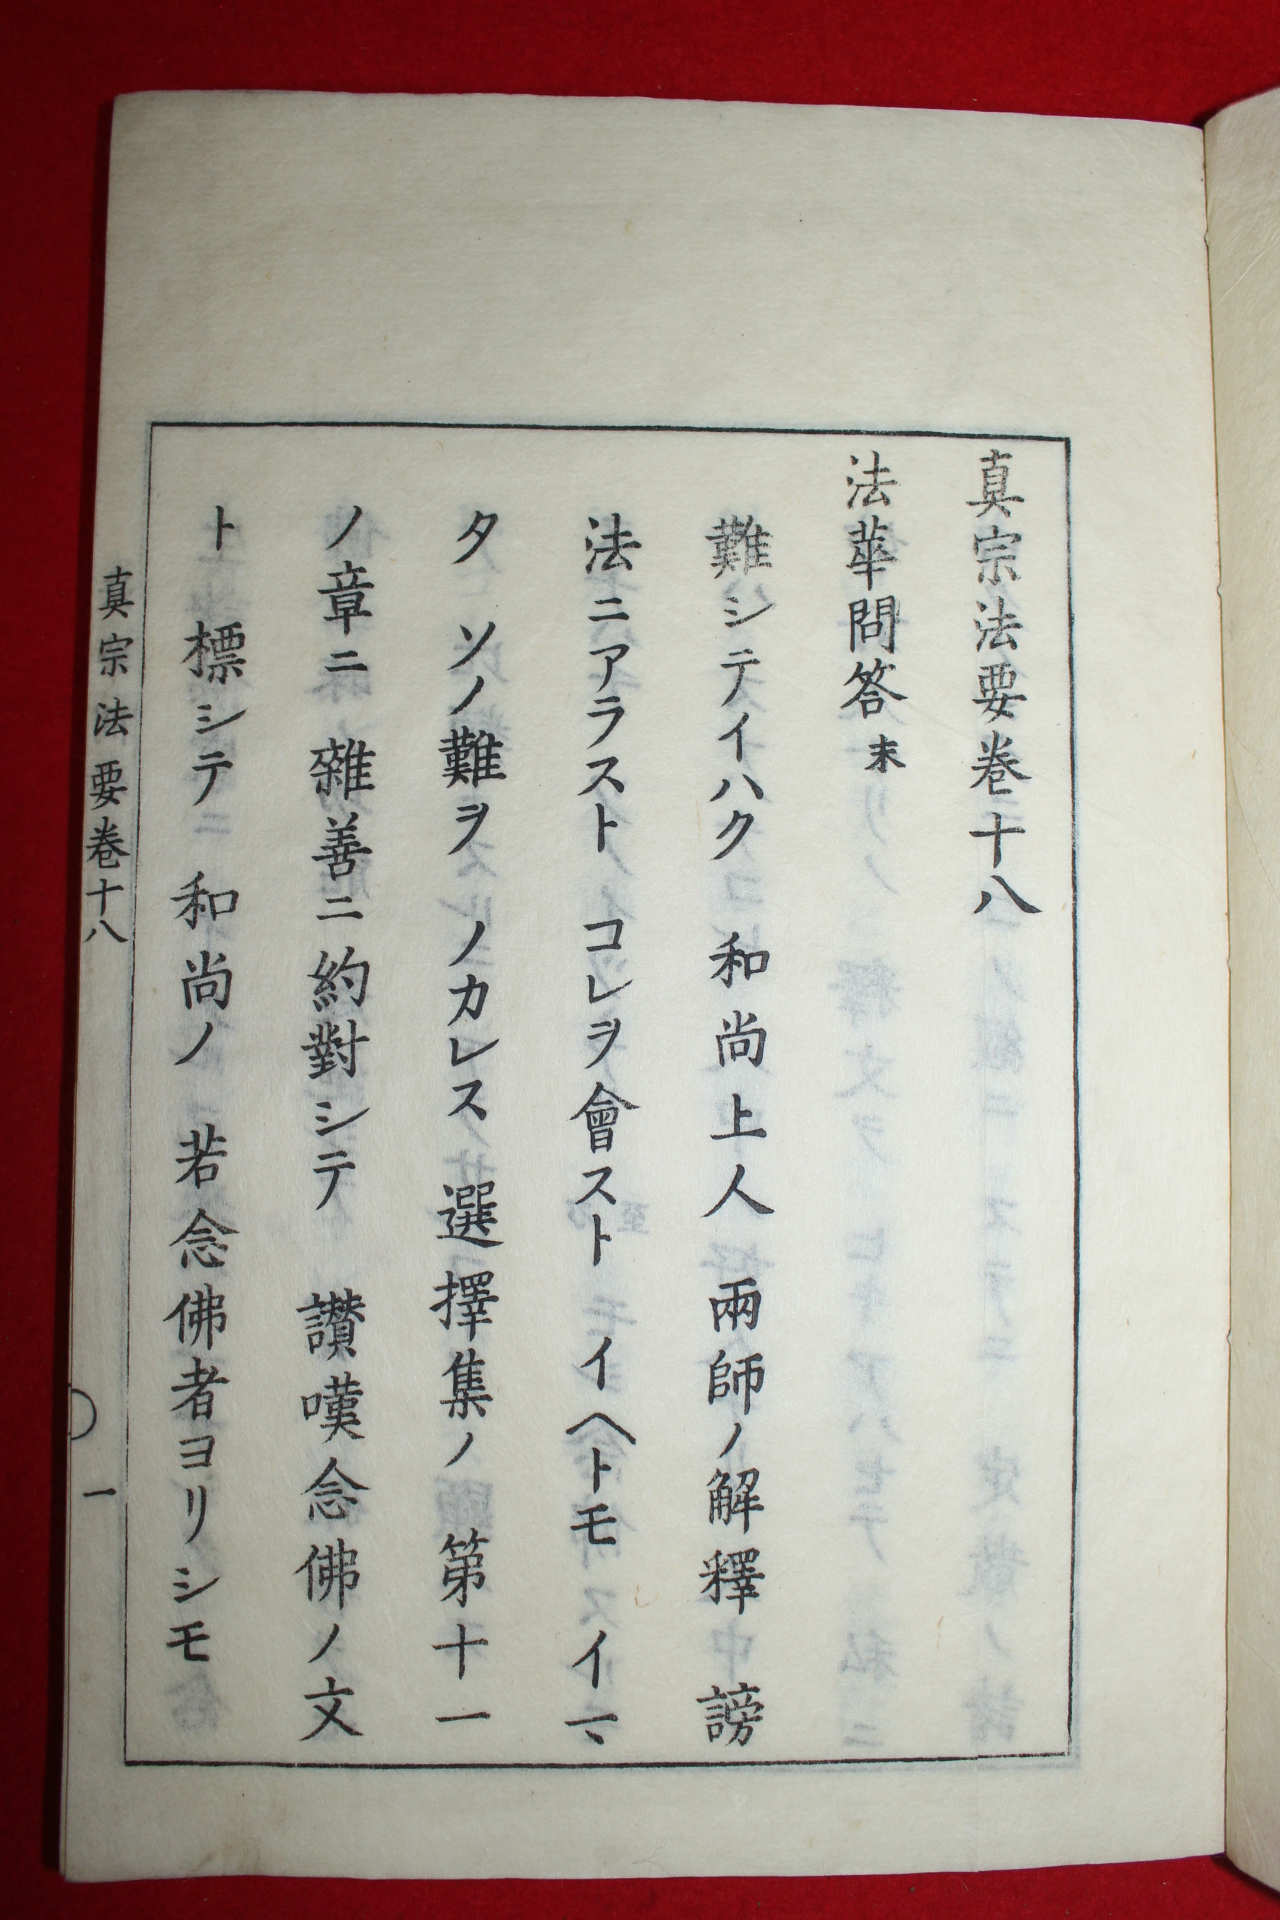 真宗法要巻十八
法華問答末
難シテイハク和尚上人兩師ノ解釋謗
法ニアラストコレヲ會ストイヘトモイマ
タソノ難ヲノカレス選擇集ノ第十一
ノ章ニ雜善ニ約對シテ讃嘆念佛ノ文
ト標シテ和尚ノ若念佛者ヨリシモ
真宗法要巻十八
一